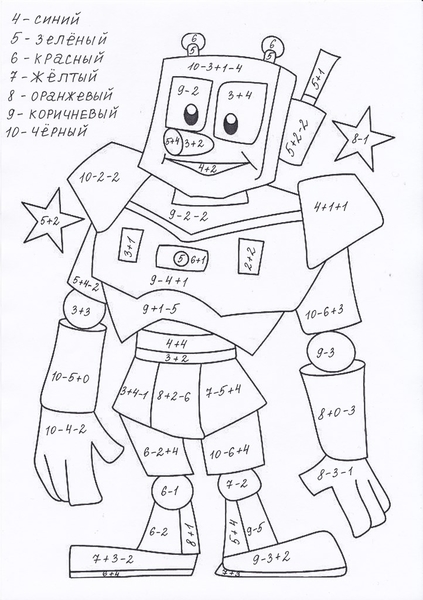 4 - синий
5 - зелёный
6 - красный
7 - жёлтый
8 - оранжевый
9 - коричневый
10 - чёрный
6
6
5
5
10-3+1-4
5+1
9-2
3+4
5+2-2
8-1
5+4
3+2
4+2
10-2-2
4+1+1
5+2
9-2-2
3+1
5
6+1
2+2
9-4+1
5+4-2
10-6+3
3+3
9+1-5
9-3
4+4
3+2
10-5+0
3+4-1
8+2-6
7-5+4
8+0-3
10-4-2
6-2+4
10-6+4
8-3-1
6-1
7-2
6-2
8+1
5+4
9-5
7+3-2
9-3+2
6+4
7+3